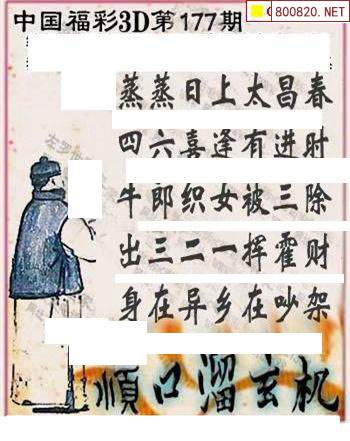 800820.NET
中国福彩3D第177期
蒸蒸日上太昌春
四六喜逢有进时
牛郎织女被三除
出三二一挥霍财
身在异乡在吵架
顺口溜玄机